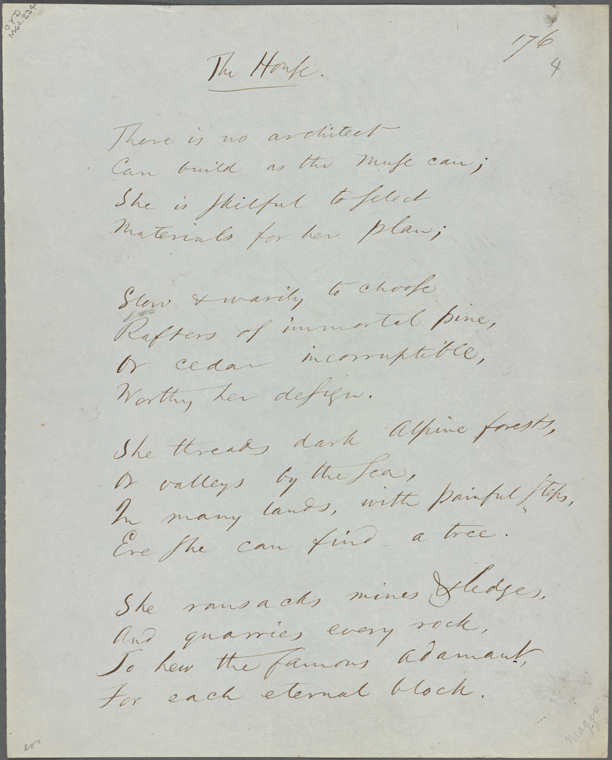 176
4
The House.
There is no architect
Can build as the Muse can;
She is skilful to select
Materials for her plan;
Slow & warily to choose
Rafters of immortal pine,
Or cedar incorruptible,
Worthy her design.
She threads dark Alpine forests,
Or valleys by the sea,
In many lands, with painful steps,
Ere she can find a tree.
She ransacks mines & ledges,
And quarries every rock,
To hew the famous adamant,
For each eternal block.